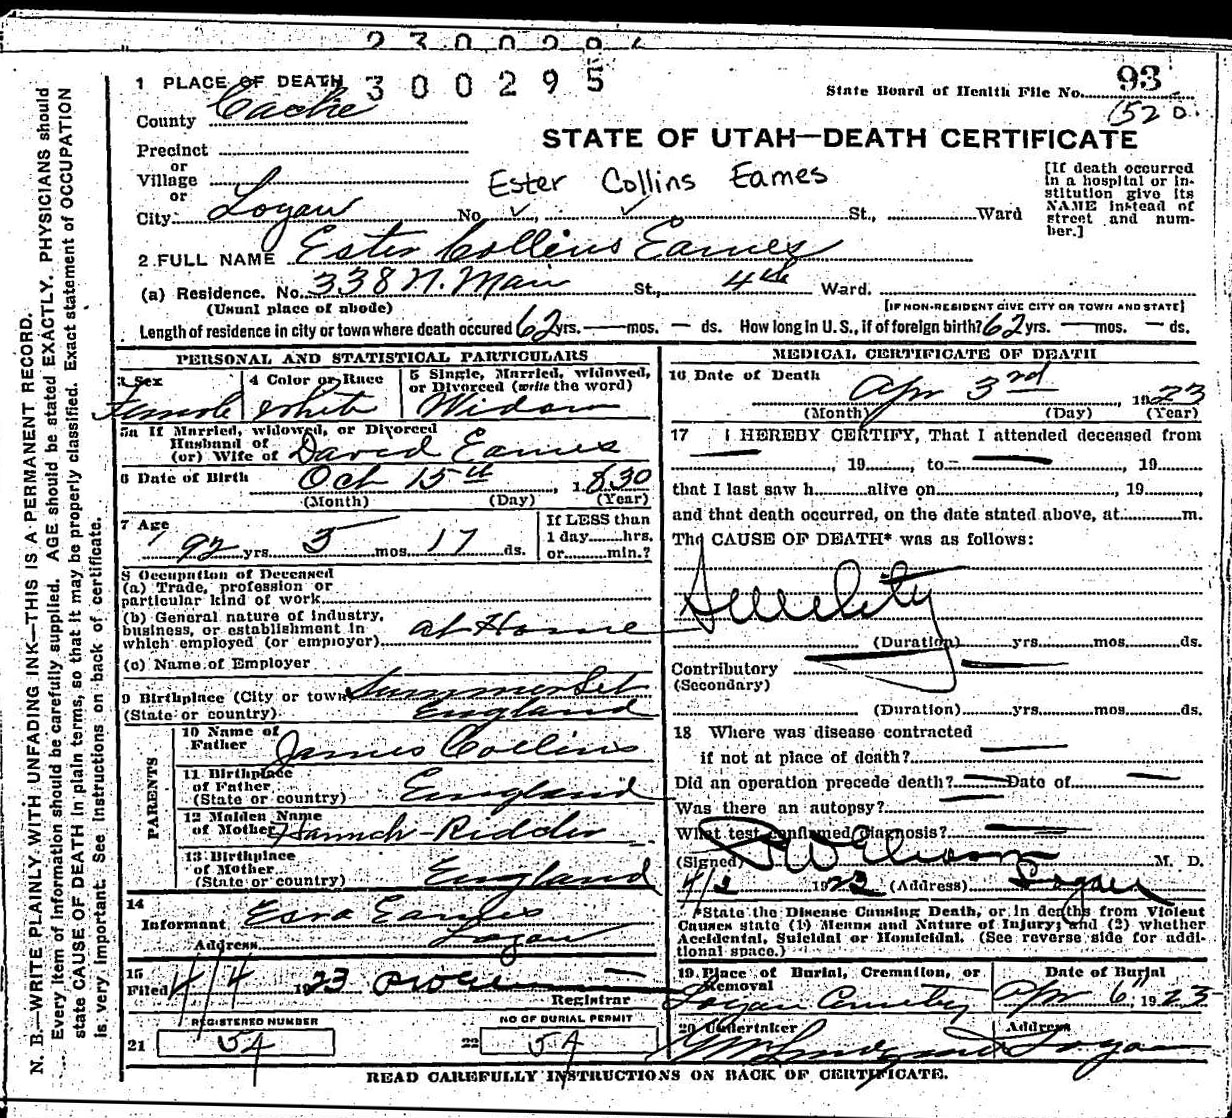 2300294
1 PLACE OF DEATH 300295
93
State Board of Health File No.
152 D.
County Cache
STATE OF UTAH—DEATH CERTIFICATE
Precinct
or
Village
or
Ester Collins Eames
City Logan No. St., Ward
[If death occurred
in a hospital or in-
stitution give its
NAME instead of
street and num-
ber.]
2 FULL NAME Ester Collins Eames
(a) Residence. No. 338 N. Main St., 4th Ward.
(Usual place of abode)
[IF NON-RESIDENT GIVE CITY OR TOWN AND STATE]
Length of residence in city or town where death occured 62 yrs. — mos. — ds. How long in U. S., if of foreign birth? 62 yrs. — mos. — ds.
PERSONAL AND STATISTICAL PARTICULARS
3 Sex
Female
4 Color or Race
White
5 Single, Married, widowed,
or Divorced (write the word)
Widow
5a If Married, widowed, or Divorced
Husband of
(or) Wife of David Eames
6 Date of Birth Oct 15th, 1830
(Month) (Day) (Year)
7 Age
92 yrs. 5 mos. 17 ds.
If LESS than
1 day hrs.
or min.?
8 Occupation of Deceased
(a) Trade, profession or
particular kind of work
(b) General nature of industry,
business, or establishment in
which employed (or employer) at Home
(c) Name of Employer
9 Birthplace (City or town) Summerset
(State or country) England
PARENTS
10 Name of
Father James Collins
11 Birthplace
of Father
(State or country) England
12 Maiden Name
of Mother Hannah
13 Birthplace
of Mother
(State or country) England
14
Informant Esra Eames
Address Logan
15
Filed 4/4 1923
Registrar
REGISTERED NUMBER
21 54
NO OF BURIAL PERMIT
22 54
MEDICAL CERTIFICATE OF DEATH
16 Date of Death Apr 3rd, 1923
(Month) (Day) (Year)
17 I HEREBY CERTIFY, That I attended deceased from
—, 19, to — , 19
that I last saw h alive on , 19,
and that death occurred, on the date stated above, at m.
The CAUSE OF DEATH* was as follows:
Senility
(Duration) yrs. mos. ds.
Contributory
(Secondary)
(Duration) yrs. mos. ds.
18 Where was disease contracted
if not at place of death? —
Did an operation precede death? — Date of —
Was there an autopsy? —
What test confirmed diagnosis? —
(Signed) M. D.
1923 (Address) Logan
*State the Disease Causing Death, or in deaths from Violent
Causes state (1) Means and Nature of Injury; and (2) whether
Accidental, Suicidal or Homicidal. (See reverse side for addi-
tional space.)
19 Place of Burial, Cremation, or
Removal
Logan Cemetery
Date of Burial
Apr 6", 1923
20 Undertaker
Address
Logan
READ CAREFULLY INSTRUCTIONS ON BACK OF CERTIFICATE.
N. B.—WRITE PLAINLY WITH UNFADING INK—THIS IS A PERMANENT RECORD.
Every item of information should be carefully supplied. AGE should be stated EXACTLY. PHYSICIANS should
state CAUSE OF DEATH in plain terms, so that it may be properly classified. Exact statement of OCCUPATION
is very important. See instructions on back of certificate.